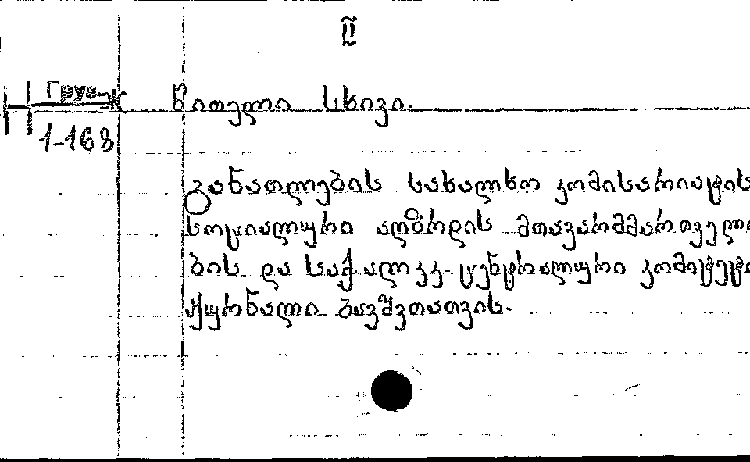 II
Груз-К წითელი სხივი.
1-168
განათლების სახალხო კომისარიატის
სოციალური აღზრდის მთავარმმართველო
ბის და საქ.ალ.კ.კ. ცენტრალური კომიტეტი
ჟურნალი ბავშვთათვის.